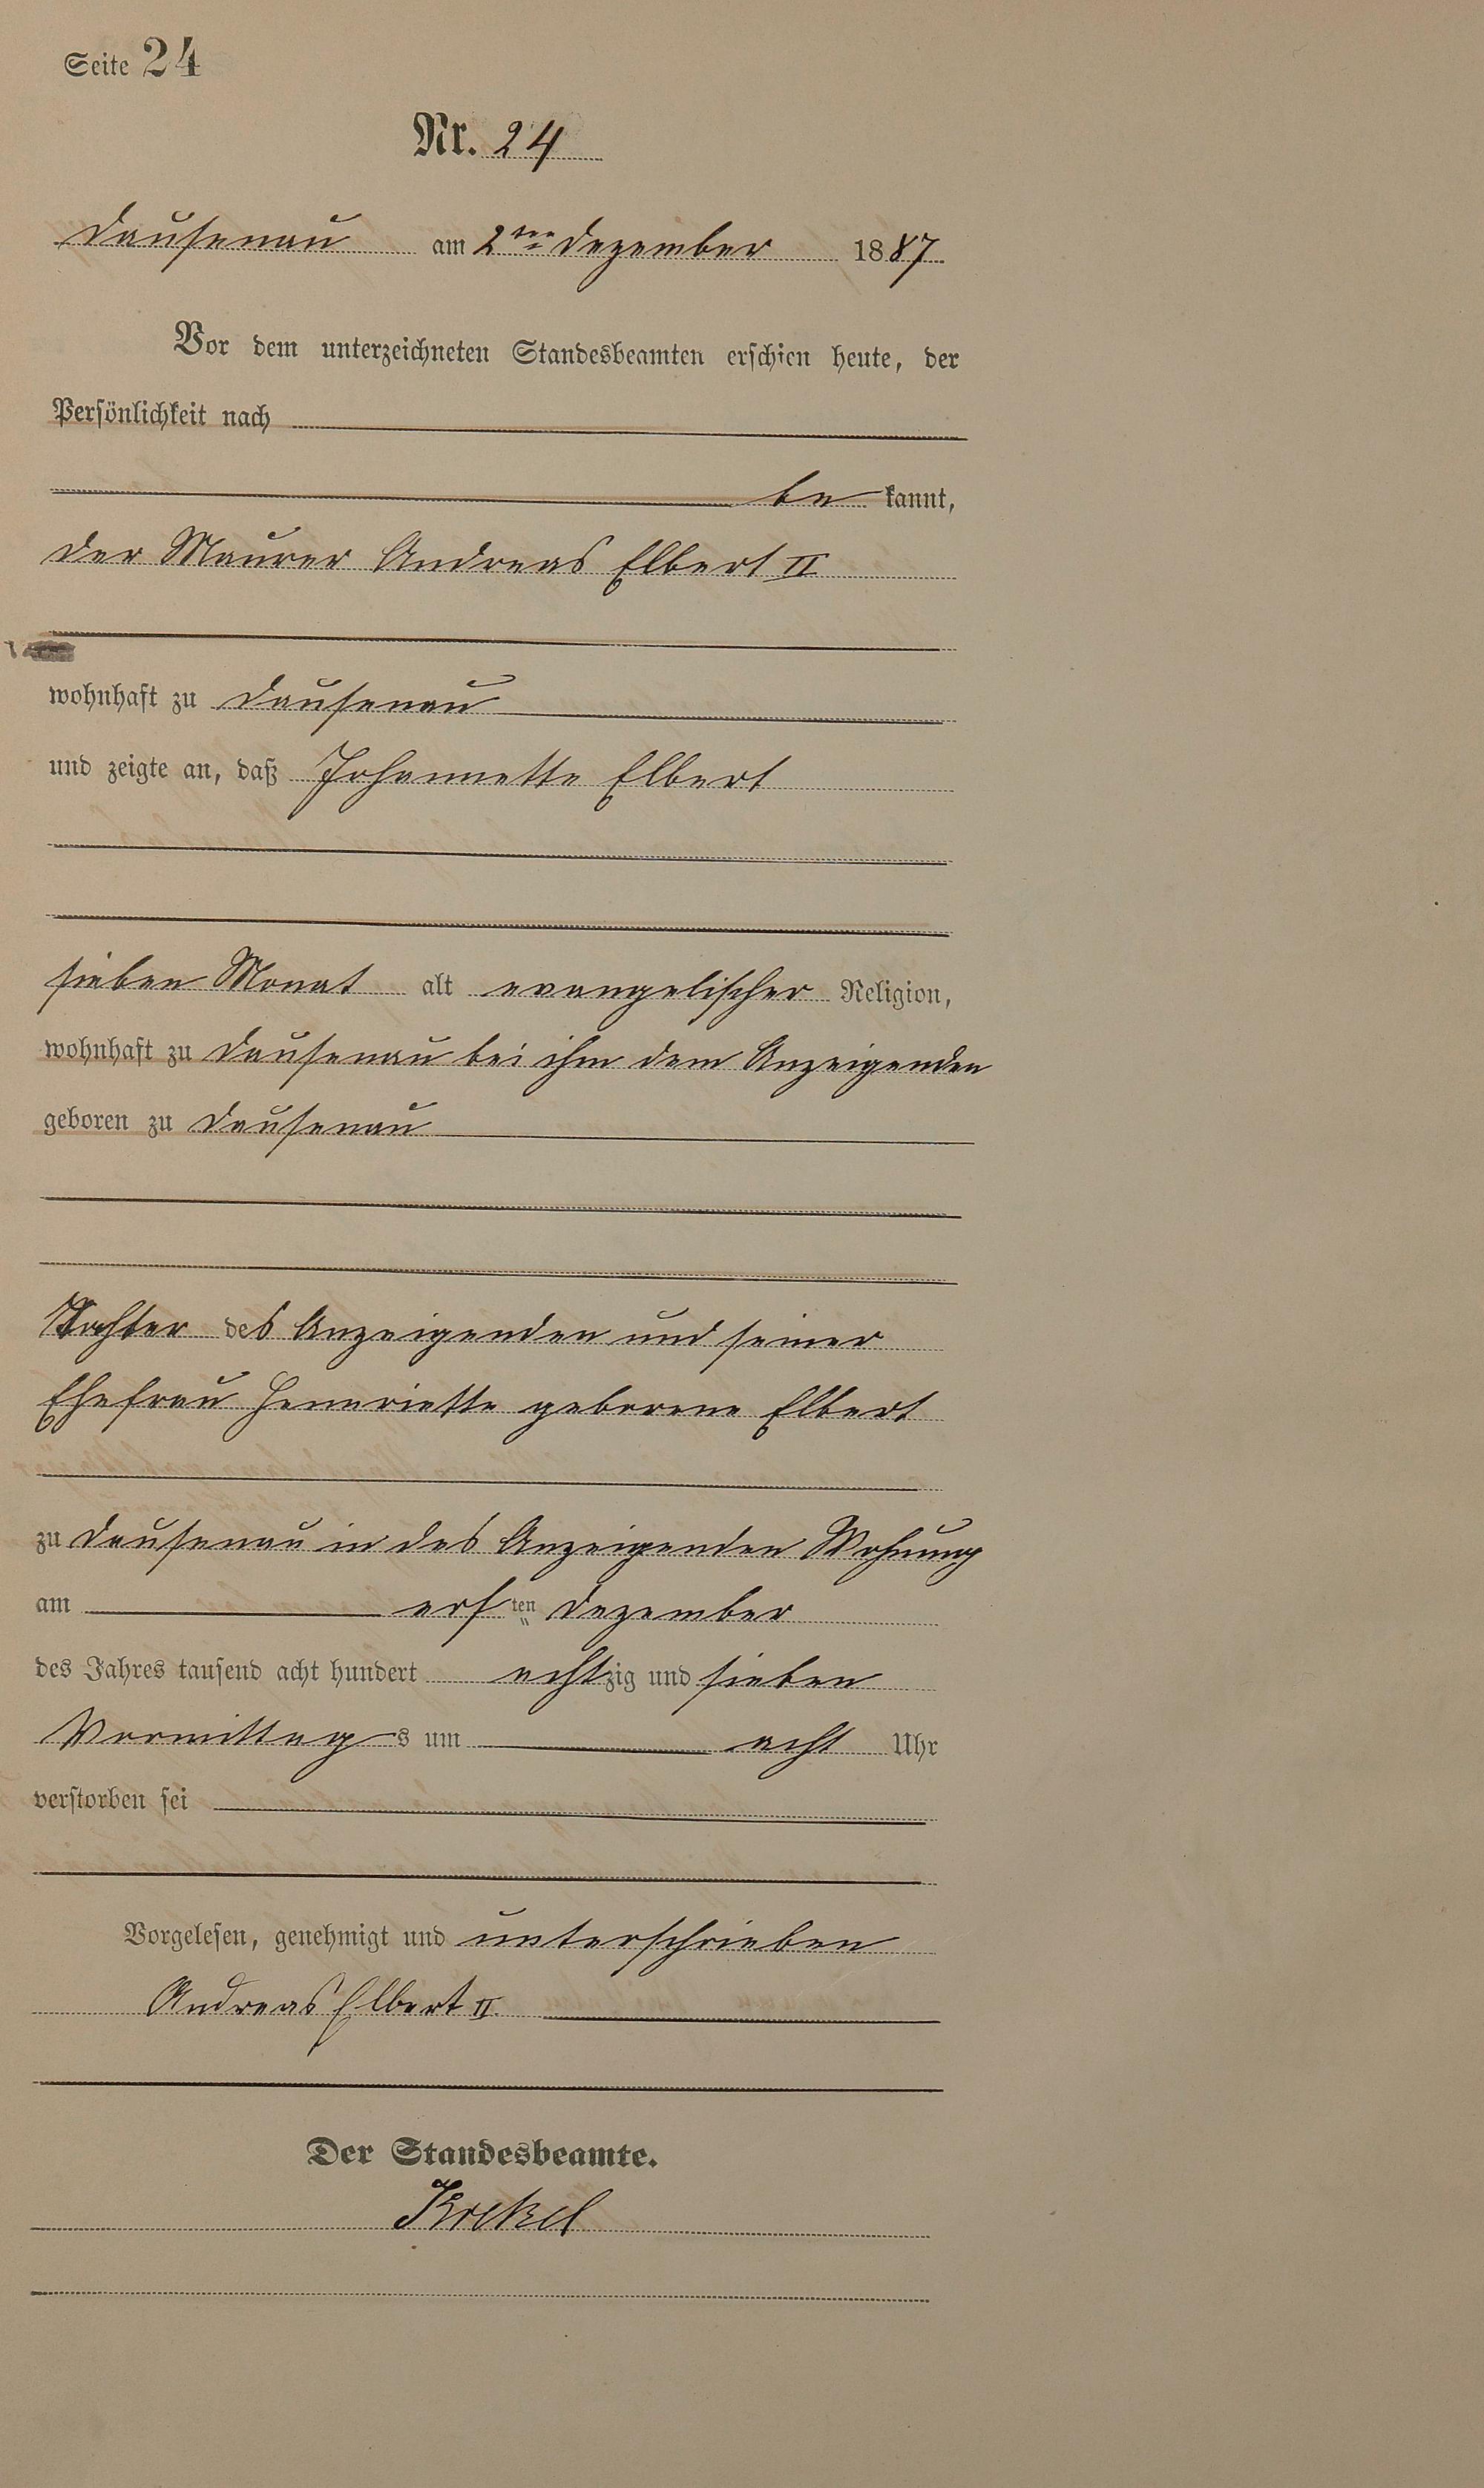 Seite 24
Nr. 24
Dausenau am 2ten Dezember 1887
Vor dem unterzeichneten Standesbeamten erschien heute, der
Persönlichkeit nach
be kannt,
der Maurer Andreas Elbert II
wohnhaft zu Dausenau
und zeigte an, daß Johannette Elbert
sieben Monat alt evangelischer Religion,
wohnhaft zu Dausenau bei ihm dem Anzeigenden
geboren zu Dausenau
Tochter des Anzeigenden und seiner
Ehefrau Henriette geborene Elbert
zu Dausenau in des Anzeigenden Wohnung
am ersten Dezember
des Jahres tausend acht hundert achtzig und sieben
Vormittags um acht Uhr
verstorben sei
Vorgelesen, genehmigt und unterschrieben
Andreas Elbert II.
Der Standesbeamte.
Krekel